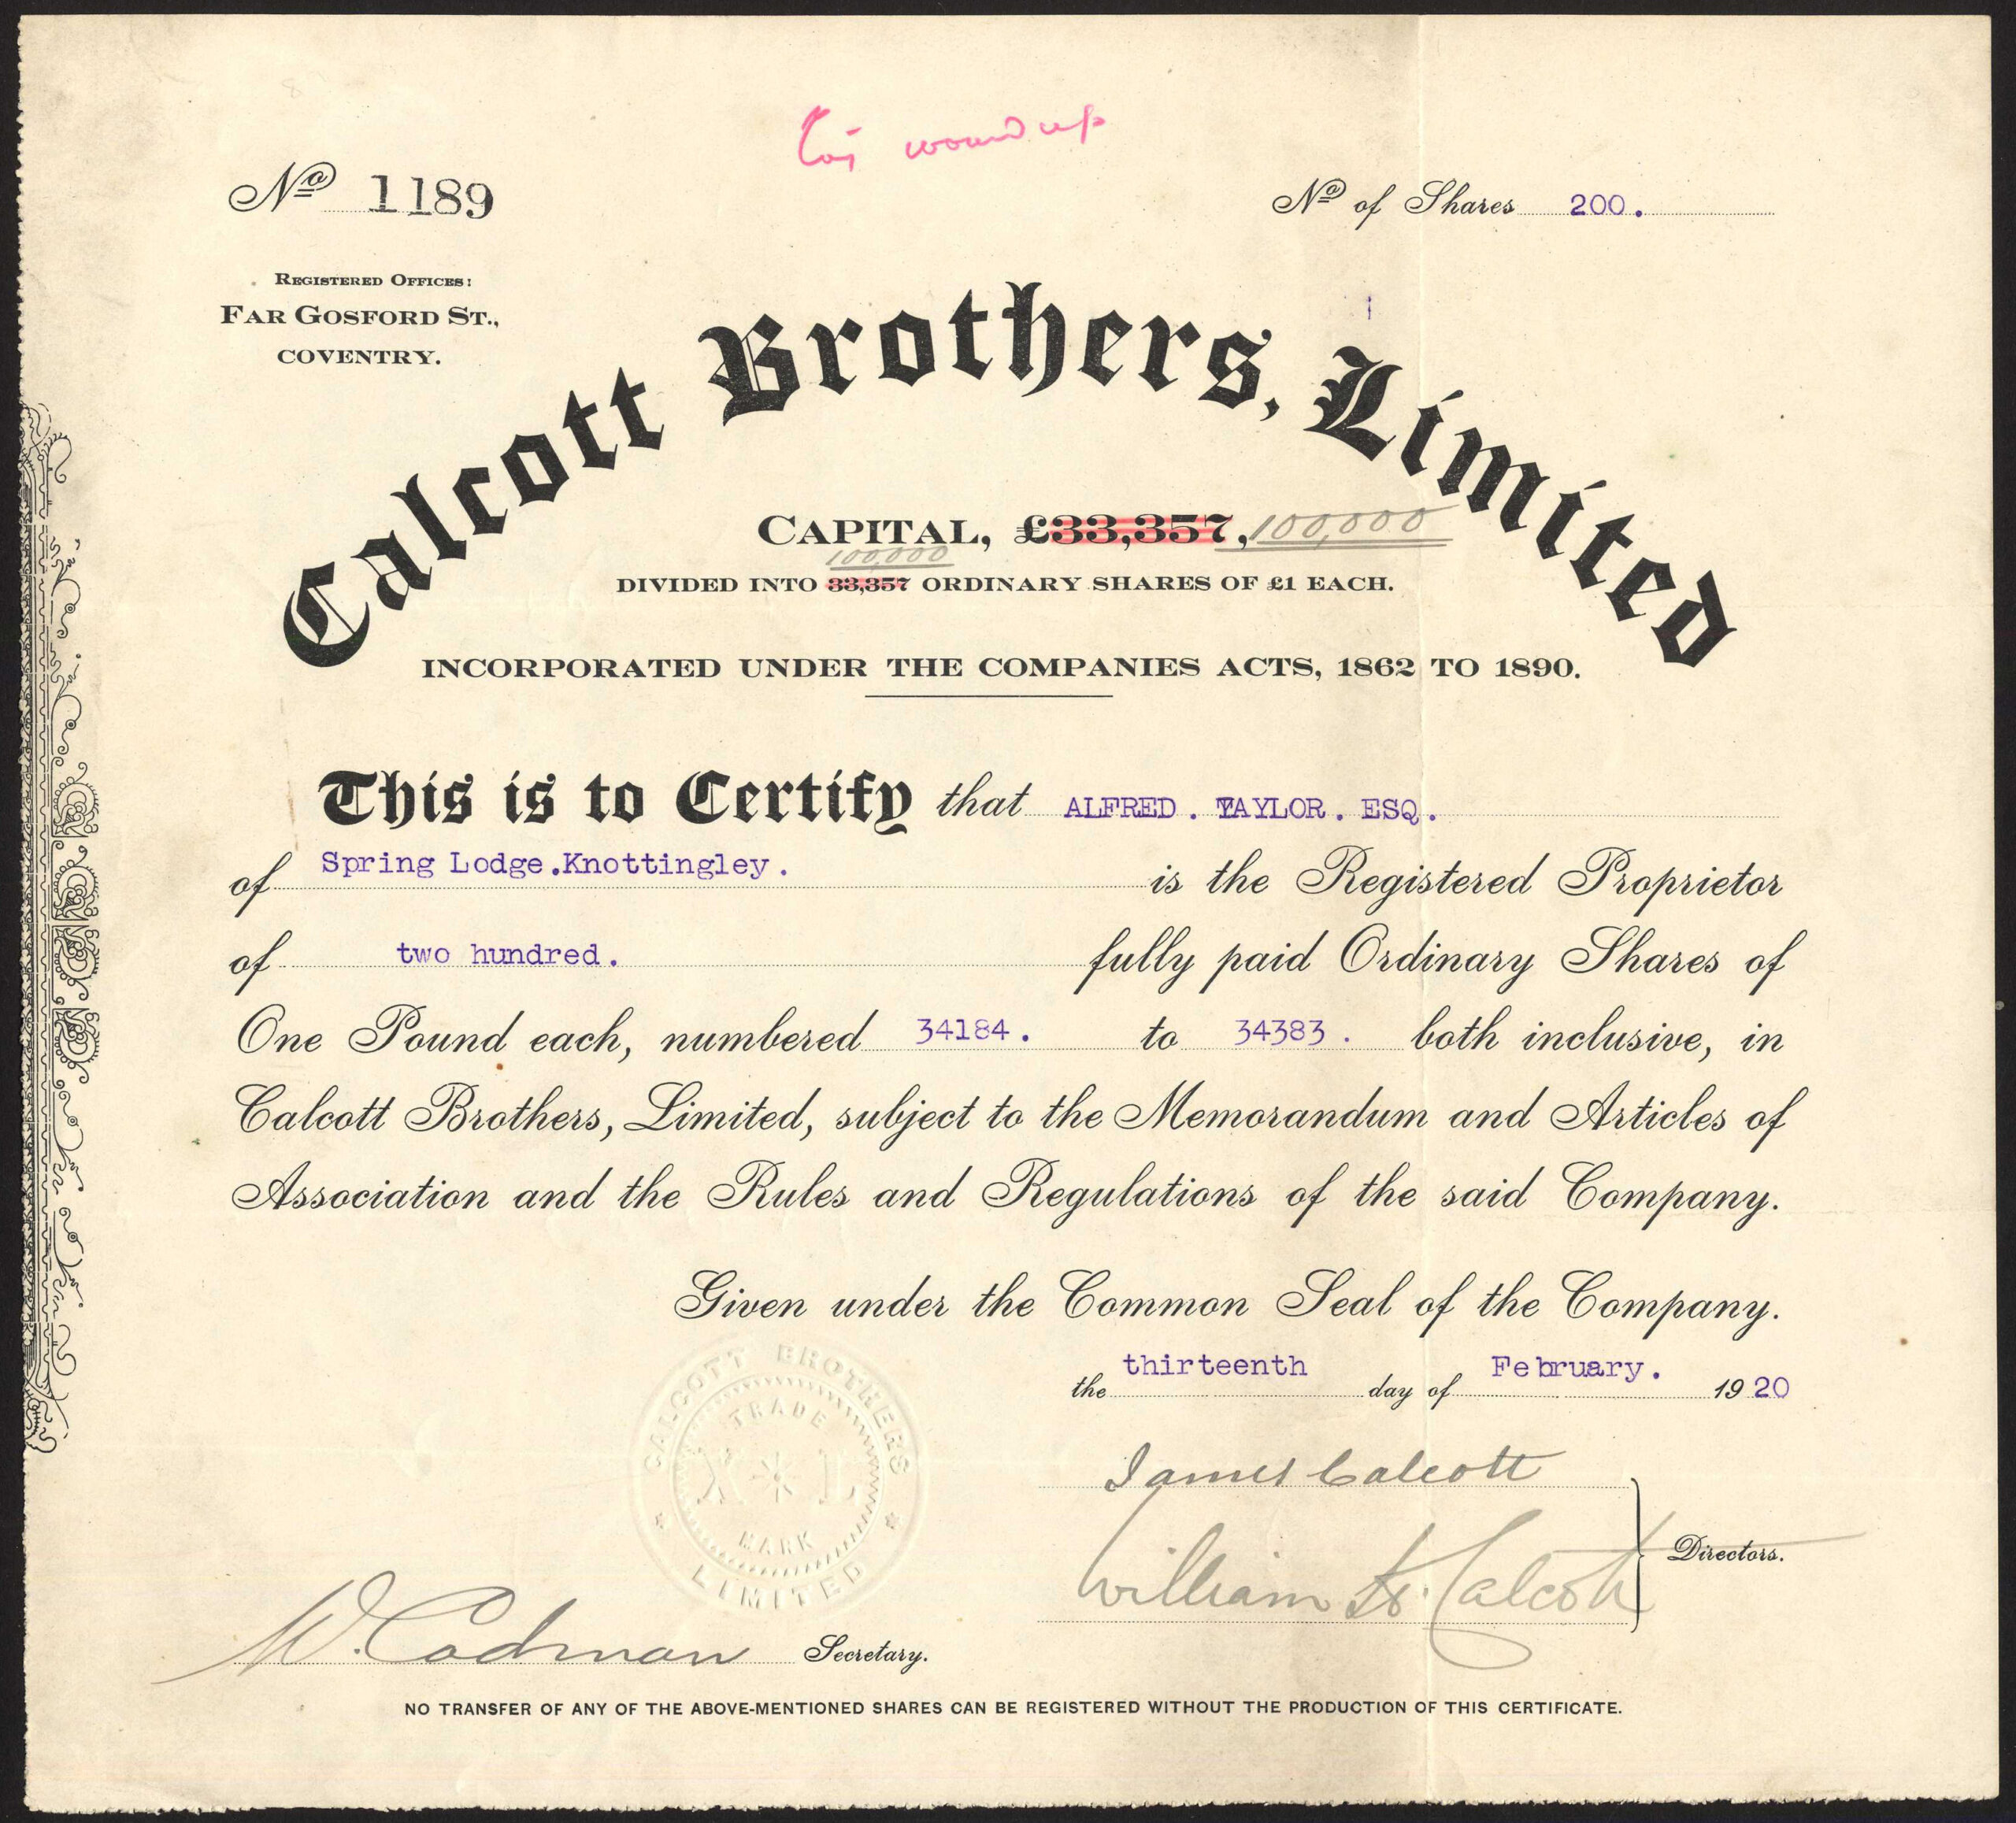 Coy wound up
No 1189
No of Shares 200.
REGISTERED OFFICES:
FAR GOSFORD ST.,
COVENTRY.
Calcott Brothers, Limited
CAPITAL, £33,357, 100,000
100,000
DIVIDED INTO 33,357 ORDINARY SHARES OF £1 EACH.
INCORPORATED UNDER THE COMPANIES ACTS, 1862 TO 1890.
This is to Certify that ALFRED. TAYLOR. ESQ.
of Spring Lodge.Knottingley. is the Registered Proprietor
of two hundred. fully paid Ordinary Shares of
One Pound each, numbered 34184. to 34383. both inclusive, in
Calcott Brothers, Limited, subject to the Memorandum and Articles of
Association and the Rules and Regulations of the said Company.
Given under the Common Seal of the Company.
the thirteenth day of February. 1920
CALCOTT BROTHERS
TRADE
MARK
LIMITED
James Calcott
William H. Calcott
Directors.
W. Codman Secretary.
NO TRANSFER OF ANY OF THE ABOVE-MENTIONED SHARES CAN BE REGISTERED WITHOUT THE PRODUCTION OF THIS CERTIFICATE.